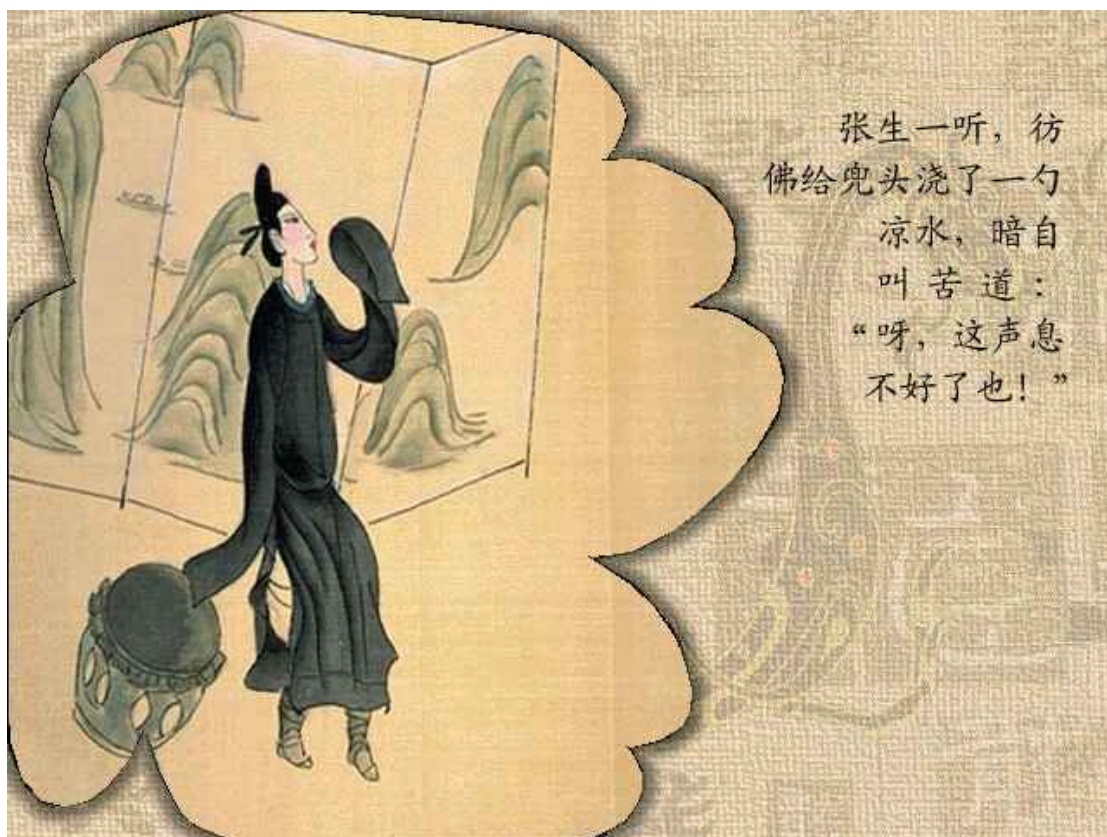 张生一听，彷
佛给兜头浇了一勺
凉水，暗自
叫苦道：
“呀，这声息
不好了也！”